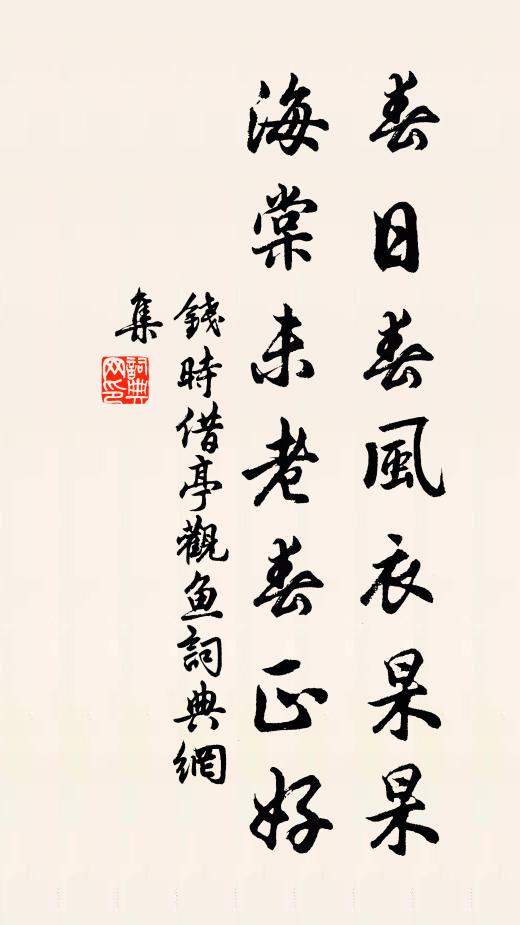 春日春風衣杲杲
海棠未老春正好
錢時借亭觀鱼詞典網
集
詞典网印